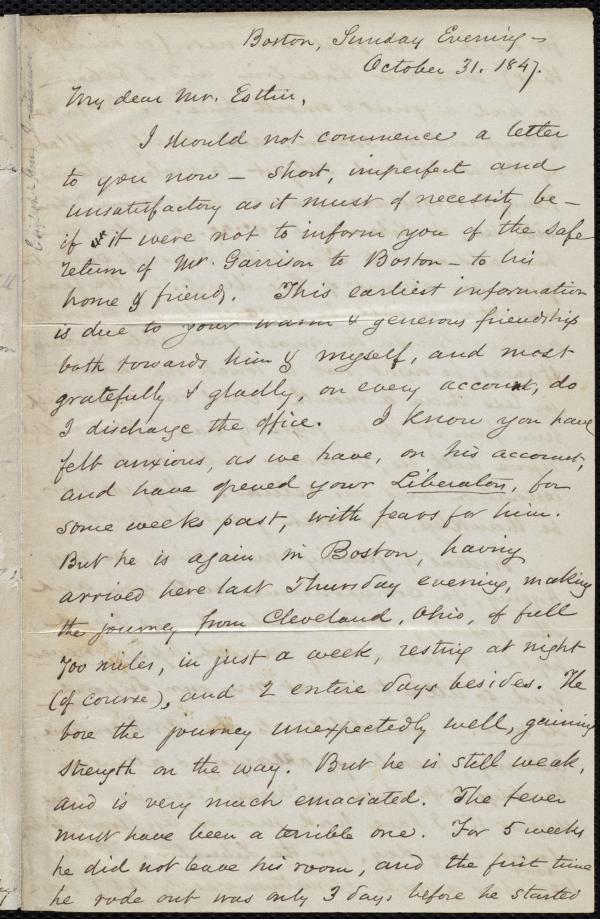 Boston, Sunday Evening –
October 31. 1847.
My dear Mr. Estlin,
I should not commence a letter
to you now – short, imperfect and
unsatisfactory as it must of necessity be –
if it were not to inform you of the safe
return of Mr. Garrison to Boston – to his
home & friends. This earliest information
is due to your warm & generous friendship
both towards him & myself, and most
gratefully & gladly, on every account, do
I discharge the office. I know you have
felt anxious, as we have, on his account,
and have opened your Liberator, for
some weeks past, with fears for him.
But he is again in Boston, having
arrived here last Thursday evening, making
the journey from Cleveland, Ohio, of full
700 miles, in just a week, resting at night
(of course), and 2 entire days besides. He
bore the journey unexpectedly well, gaining
strength on the way. But he is still weak,
and is very much emaciated. The fever
must have been a terrible one. For 5 weeks
he did not leave his room, and the first time
he rode out was only 3 days before he started